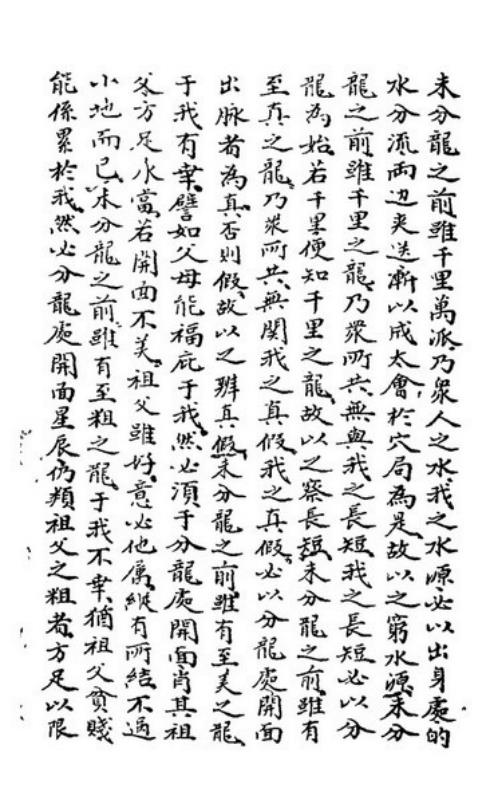 未分龍之前雖千里萬派乃衆人之水我之水源必以出身處的
水分流両边夾送漸以成太會於穴局為是故以之窮水源未分
龍之前雖千里之龍乃衆所共無與我之長短我之長短必以分
龍為始若千里便知千里之龍故以之察長短未分龍之前雖有
至真之龍乃衆所共無関我之真假我之真假必以分龍處開面
出脉者為真否則假故以之辨真假未分龍之前雖有至美之龍
于我有幸譬如父母能福庇于我然必須于分龍處開面肖其祖
父方足承當若開面不美祖父雖好意必他属縱有所結不過
小地而已未分龍之前雖有至粗之龍于我不幸猶祖父貧賤
能係累於我然必分龍處開面星辰仍類祖父之粗者方足以限